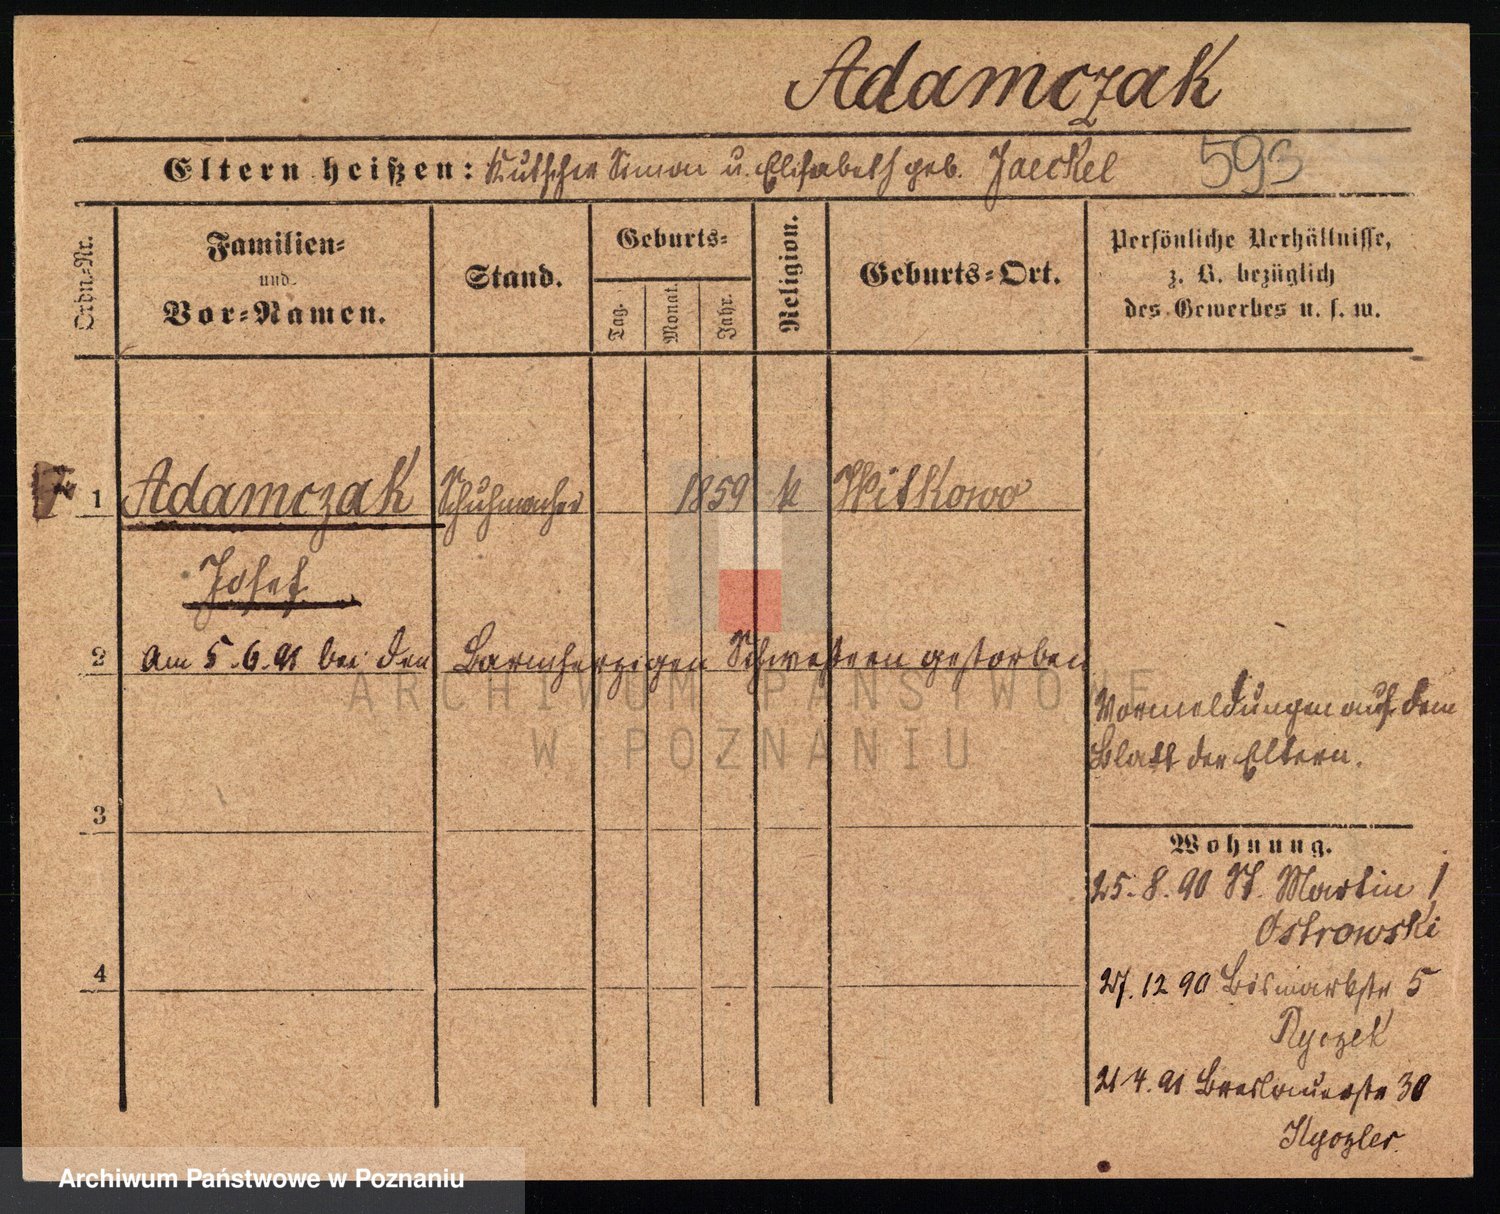 Adamczak
Eltern heißen: Kutscher Simon u. Elisabeth geb. Jaeckel 593
Ordn.-Nr.
Familien-
und
Vor-Namen.
Stand.
Geburts-
Tag.
Monat.
Jahr.
Religion.
Geburts-Ort.
Persönliche Verhältnisse,
z. B. bezüglich
des Gewerbes u. s. w.
1 Adamczak Schuhmacher 1859 k Witkowo
Josef
2 am 5.6.91 bei den Barmherzigen Schwestern gestorben
ARCHIWUM PAŃSTWOWE
W POZNANIU
Vormeldungen auf dem
Blatt der Eltern.
3
Wohnung.
25.8.90 St. Martin 1
Ostrowski
4
27.12 90 Bismarkstr 5
21 4.91 Breslauerstr 30
Archiwum Państwowe w Poznaniu